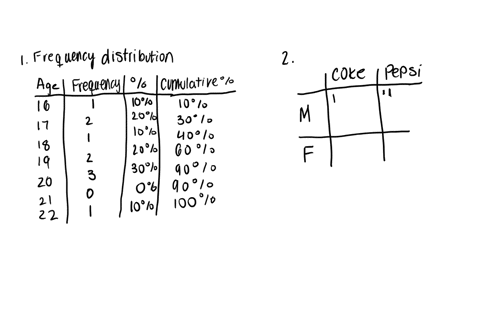 1. Frequency distribution
Age Frequency % Cumulative %
16 1 10% 10%
17 2 20% 30%
18 1 10% 40%
19 2 20% 60%
20 3 30% 90%
21 0 0% 90%
22 1 10% 100%
2.
Coke Pepsi
M ı ıı
F